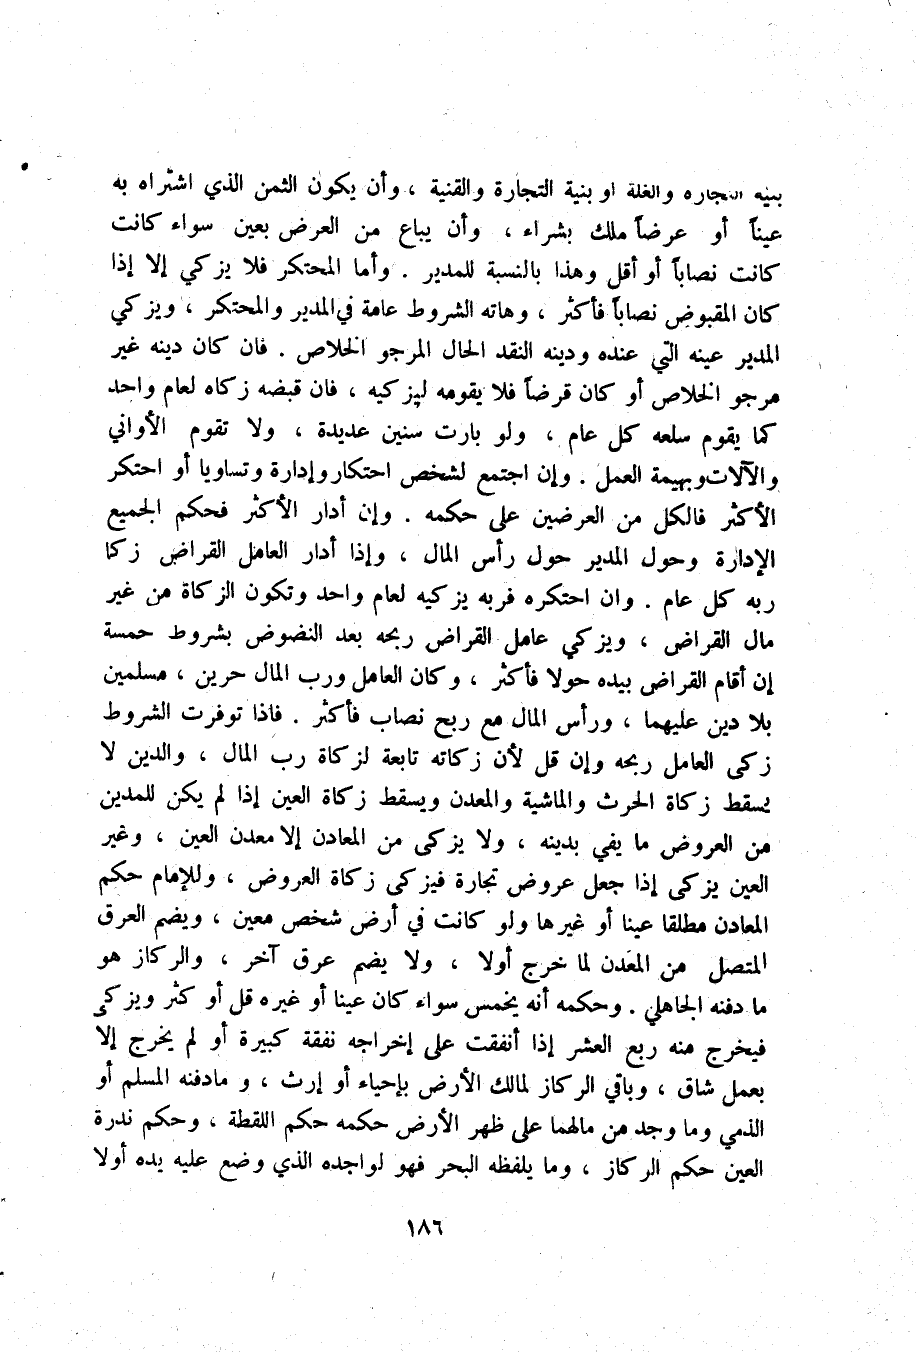 بنية التجارة والغلة او بنية التجارة والقنية ، وأن يكون الثمن الذي اشتراه به
عيناً أو عرضاً ملك بشراء ، وأن يباع من العرض بعين سواء كانت
كانت نصاباً أو أقل وهذا بالنسبة للمدير . وأما المحتكر فلا يزكي إلا إذا
كان المقبوض نصاباً فأكثر ، وهاته الشروط عامة في المدير والمحتكر ، ويزكي
المدير عينه التي عنده ودينه النقد الحال المرجو الخلاص . فان كان دينه غير
مرجو الخلاص أو كان قرضاً فلا يقومه ليزكيه ، فان قبضه زكاه لعام واحد
كما يقوم سلعه كل عام ، ولو بارت سنين عديدة ، ولا تقوم الأواني
والآلات وبهيمة العمل . وإن اجتمع لشخص احتكار وإدارة وتساويا أو احتكر
الأكثر فالكل من العرضين على حكمه . وإن أدار الأكثر فحكم الجميع
الإدارة وحول المدير حول رأس المال ، وإذا أدار العامل القراض زكا
ربه كل عام . وان احتكره فربه يزكيه لعام واحد وتكون الزكاة من غير
مال القراض ، ويزكي عامل القراض ربحه بعد النضوض بشروط خمسة
إن أقام القراض بيده حولا فأكثر ، وكان العامل ورب المال حرين ، مسلمين
بلا دين عليهما ، ورأس المال مع ربح نصاب فأكثر . فاذا توفرت الشروط
زكى العامل ربحه وإن قل لأن زكاته تابعة لزكاة رب المال ، والدين لا
يسقط زكاة الحرث والماشية والمعدن ويسقط زكاة العين إذا لم يكن للمدين
من العروض ما يفي بدينه ، ولا يزكى من المعادن إلا معدن العين ، وغير
العين يزكى إذا جعل عروض تجارة فيزكى زكاة العروض ، وللإمام حكم
المعادن مطلقا عينا أو غيرها ولو كانت في أرض شخص معين ، ويضم العرق
المتصل من المعدن لما خرج أولا ، ولا يضم عرق آخر ، والركاز هو
ما دفنه الجاهلي . وحكمه أنه يخمس سواء كان عينا أو غيره قل أو كثر ويزكى
فيخرج منه ربع العشر إذا أنفقت على إخراجه نفقة كبيرة أو لم يخرج إلا
بعمل شاق ، وباقي الركاز لمالك الأرض بإحياء أو إرث ، و مادفنه المسلم أو
الذمي وما وجد من مالهما على ظهر الأرض حكمه حكم اللقطة ، وحكم ندرة
العين حكم الركاز ، وما يلفظه البحر فهو لواجده الذي وضع عليه يده أولا
١٨٦